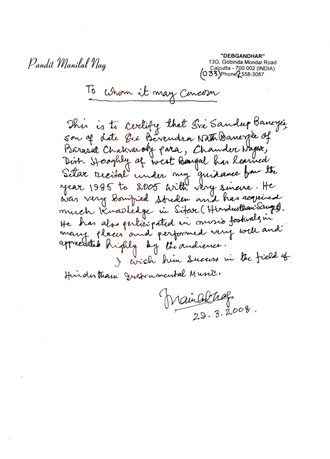 "DEBGANDHAR"
13G, Gobinda Mondal Road
Calcutta - 700 002 (INDIA)
(033) Phone 2558-3087
Pandit Manilal Nag
To whom it may concern
This is to certify that Sri Sandeep Banerjee
son of Late Sri Birendra Nath Banerjee of
Barasat Chakraborty para, Chander Nagar,
Dist. Hooghly of West Bengal has learned
Sitar Recital under my guidance from the
year 1985 to 2005 with very sincere. He
was very bonified student and has acquired
much knowledge in Sitar (Hindusthani
He has also participated in music festivals in
many places and performed very well and
appreciated highly by the audience.
I wish him success in the field of
Hindusthani Instrumental Music.
Manilal Nag
22.3.2008.